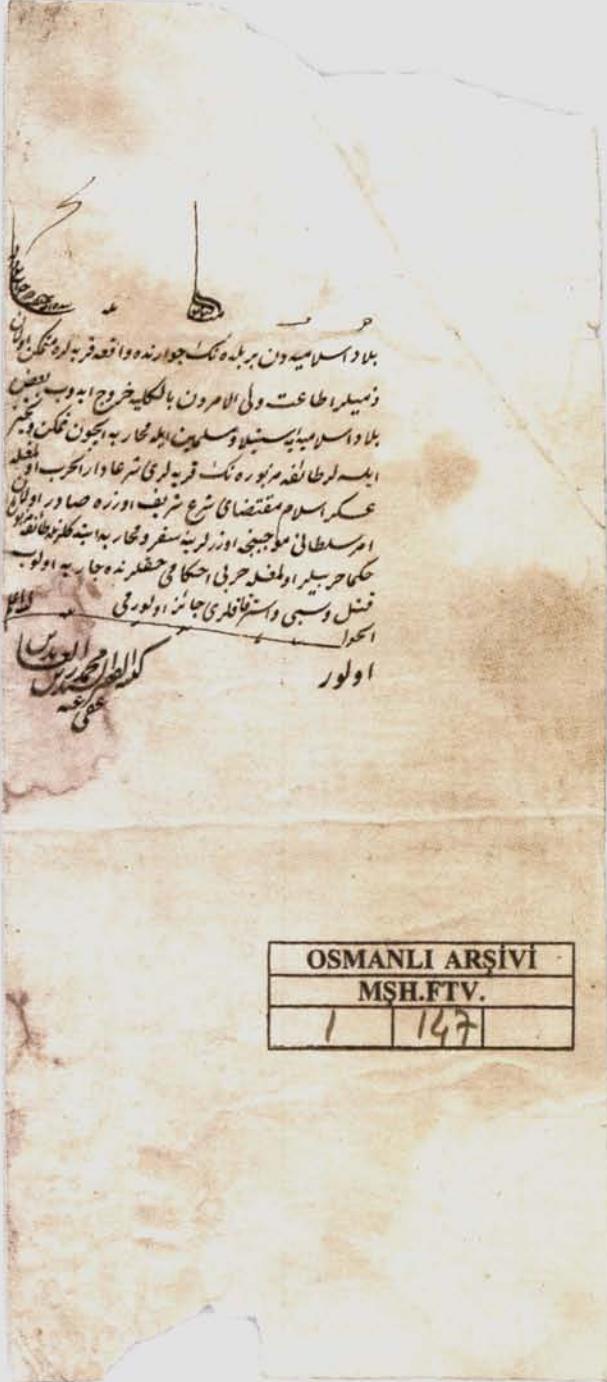 بلاد اسلامیه‌دن بر بلده‌نك جوارنده واقعه قریه‌لرده متمكن اولان
ذمیلر اطاعت ولی الامردن بالكلیه خروج ایدوب بعض
بلاد اسلامیه‌یه استیلا و مسلمین ایله محاربه ایچون تمكن و تحیز
ایلسه‌لر طائفه مزبوره‌نك قریه‌لری شرعا دار الحرب اولمغله
عسكر اسلام مقتضای شرع شریف اوزره صادر اولان
امر سلطانی موجبنجه اوزرلرینه سفر و محاربه ایتدكلرنده طائفه مزبوره
حكما حربیلر اولمغله حربی احكامی حقلرنده جاریه اولوب
قتل و سبی و استرقاقلری جائز اولورمی
الجواب
اولور
كتبه الفقیر محمد
عفی عنه
OSMANLI ARŞİVİ
MŞH.FTV.
1 147